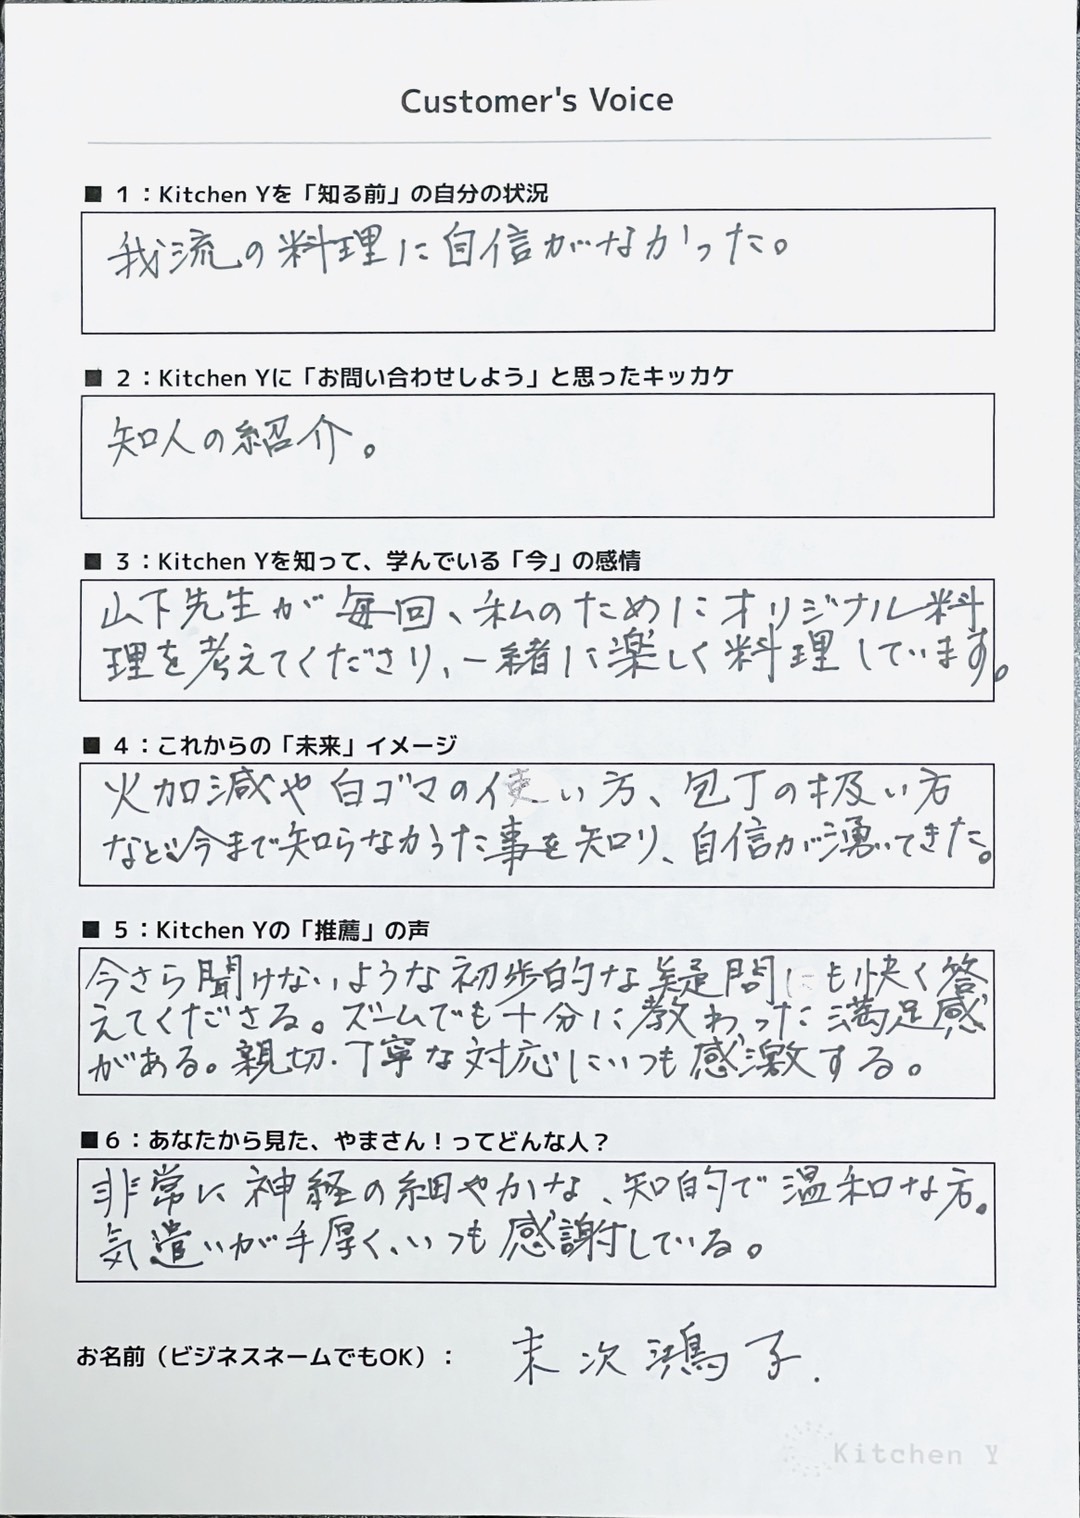 Customer's Voice
■ 1：Kitchen Yを「知る前」の自分の状況
我流の料理に自信がなかった。
■ 2：Kitchen Yに「お問い合わせしよう」と思ったキッカケ
知人の紹介。
■ 3：Kitchen Yを知って、学んでいる「今」の感情
山下先生が毎回、私のためにオリジナル料
理を考えてくださり、一緒に楽しく料理しています。
■ 4：これからの「未来」イメージ
火加減や白ゴマの使い方、包丁の扱い方
など今まで知らなかった事を知り、自信が湧いてきた。
■ 5：Kitchen Yの「推薦」の声
今さら聞けないような初歩的な疑問にも快く答
えてくださる。ズームでも十分に教わった満足感
がある。親切・丁寧な対応にいつも感激する。
■6：あなたから見た、やまさん！ってどんな人？
非常に神経の細やかな、知的で温和な方。
気遣いが手厚く、いつも感謝している。
お名前（ビジネスネームでもOK）： 末次鴻子.
Kitchen Y